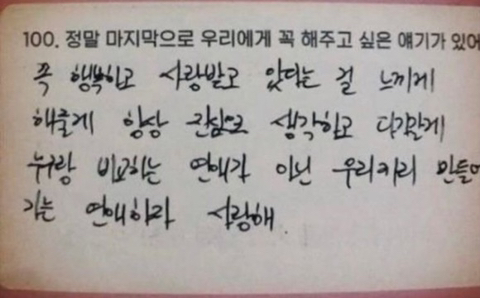 100. 정말 마지막으로 우리에게 꼭 해주고 싶은 얘기가 있어
꼭 행복하고 사랑받고 있다는 걸 느끼게
해줄게 항상 진심으로 생각하고 다정하게
누구랑 비교하는 연애가 아닌 우리끼리 만들어
가는 연애하자 사랑해